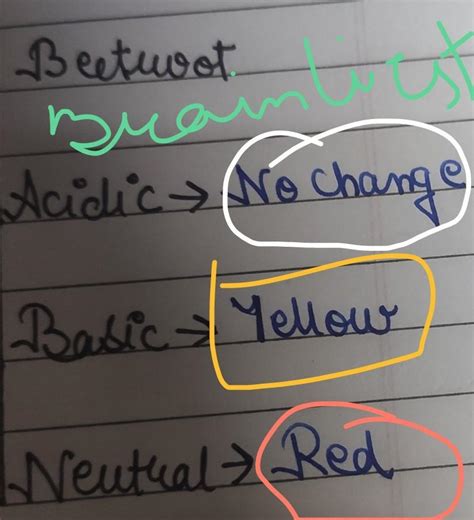 Beetroot.
Brainliest
Acidic → No change
Basic → Yellow
Neutral → Red